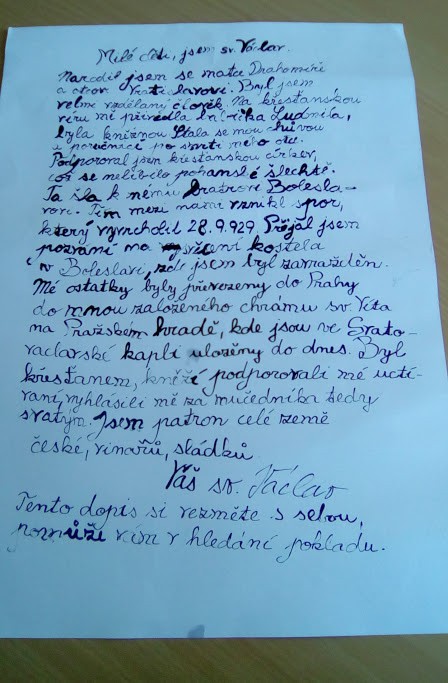 Milé děti, jsem sv. Václav.
Narodil jsem se matce Drahomíře
a otcovi Vratislavovi. Byl jsem
velmi vzdělaný člověk. Na křesťanskou
víru mě převedla babička Ludmila,
byla kněžnou. Stala se mou chůvou
a po smrti mého otce.
Podporoval jsem křesťanskou církev,
což se nelíbilo pohanské šlechtě.
Ta šla k němu bratrovi Bolesla-
vovi. Tím mezi námi vznikl spor,
který vyvrcholil 28.9.929. Přijal jsem
pozvání na svěcení kostela
v Boleslavi, zde jsem byl zavražděn.
Mé ostatky byly převezeny do Prahy
do mnou založeného chrámu sv. Víta
na Pražském hradě, kde jsou ve Svato-
václavské kapli uloženy do dnes. Byl
křesťanem, kněží podporovali mé uctí-
vaní, vyhlásili mě za mučedníka tedy
svatým. Jsem patron celé země
české, vinařů, sládků.
Váš sv. Václav
Tento dopis si vezměte s sebou,
pomůže vám v hledání pokladu.